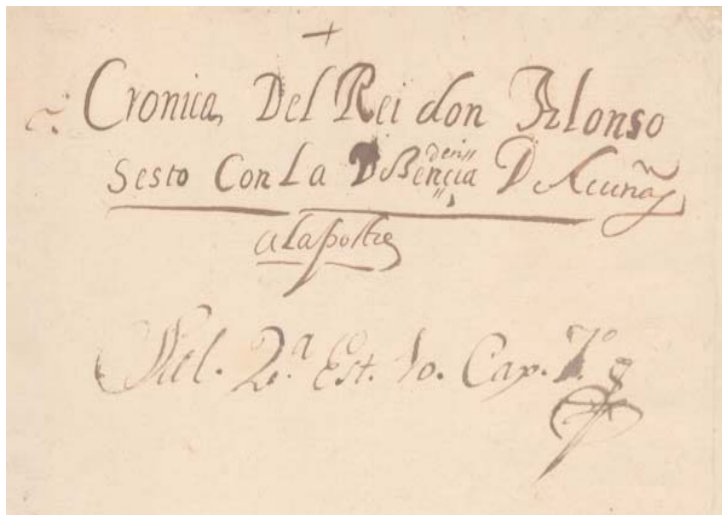 +
Cronica Del Rei don Alonso
Sesto Con La D Bencia D Acuña
deri
a la postre
Est. 10. Cax. 7.º